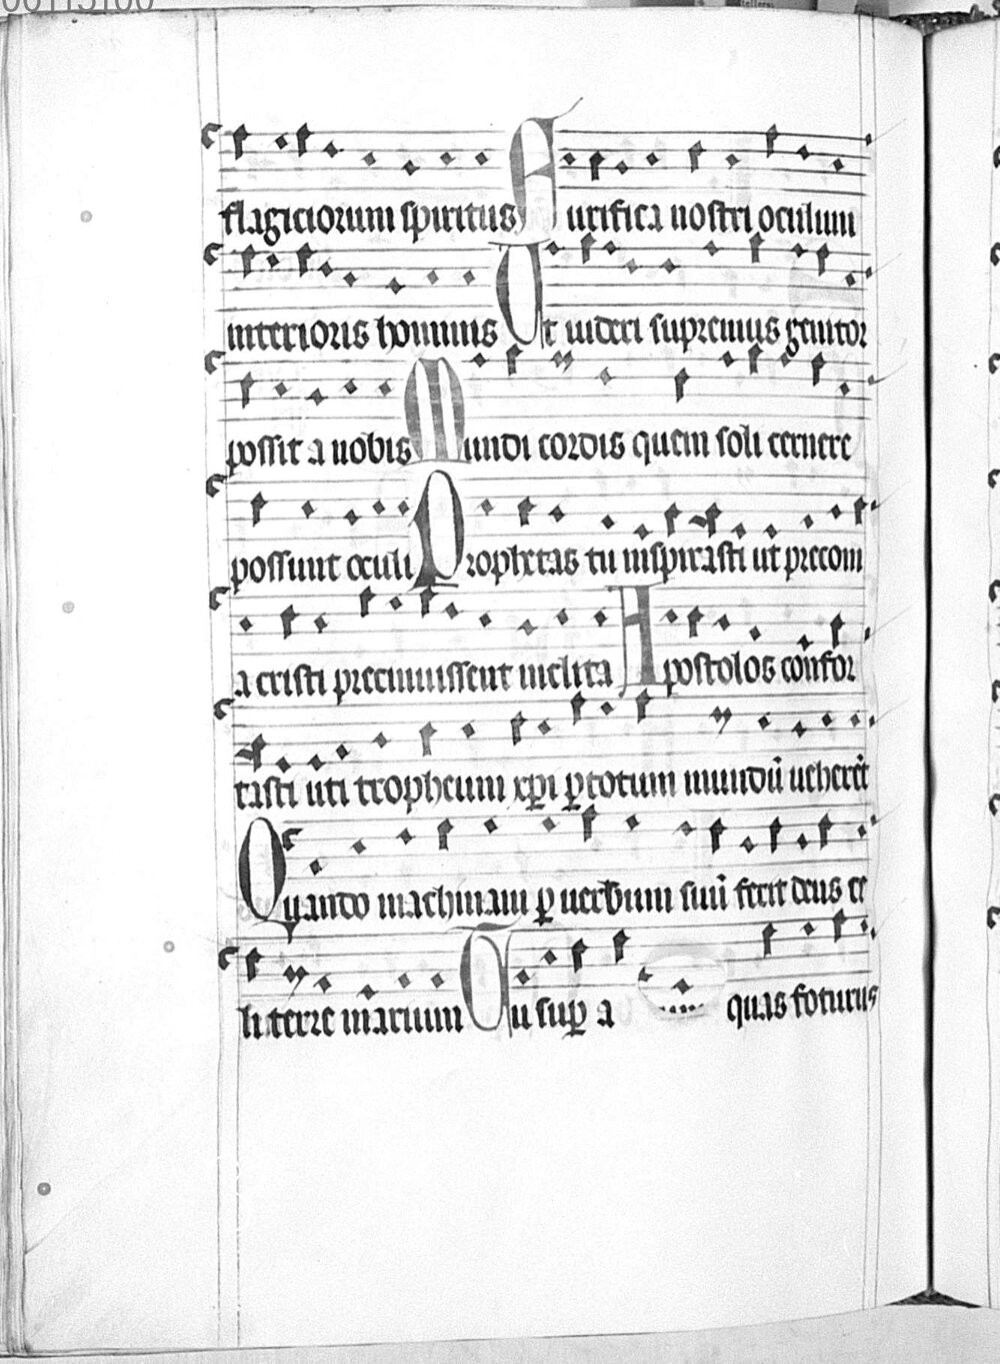 flagiciorum spiritus Purifica nostri oculum
interioris hominis Ut videri supremus genitor
possit a nobis Mundi cordis quem soli cernere
possunt oculi Prophetas tu inspirasti ut preconi
a cristi precinuissent inclita Apostolos confor
tasti uti tropheum xpi p totum mundū veherēt
Quando machinam p verbum suū fecit deus ce
li terre marium Tu sup a quas foturus